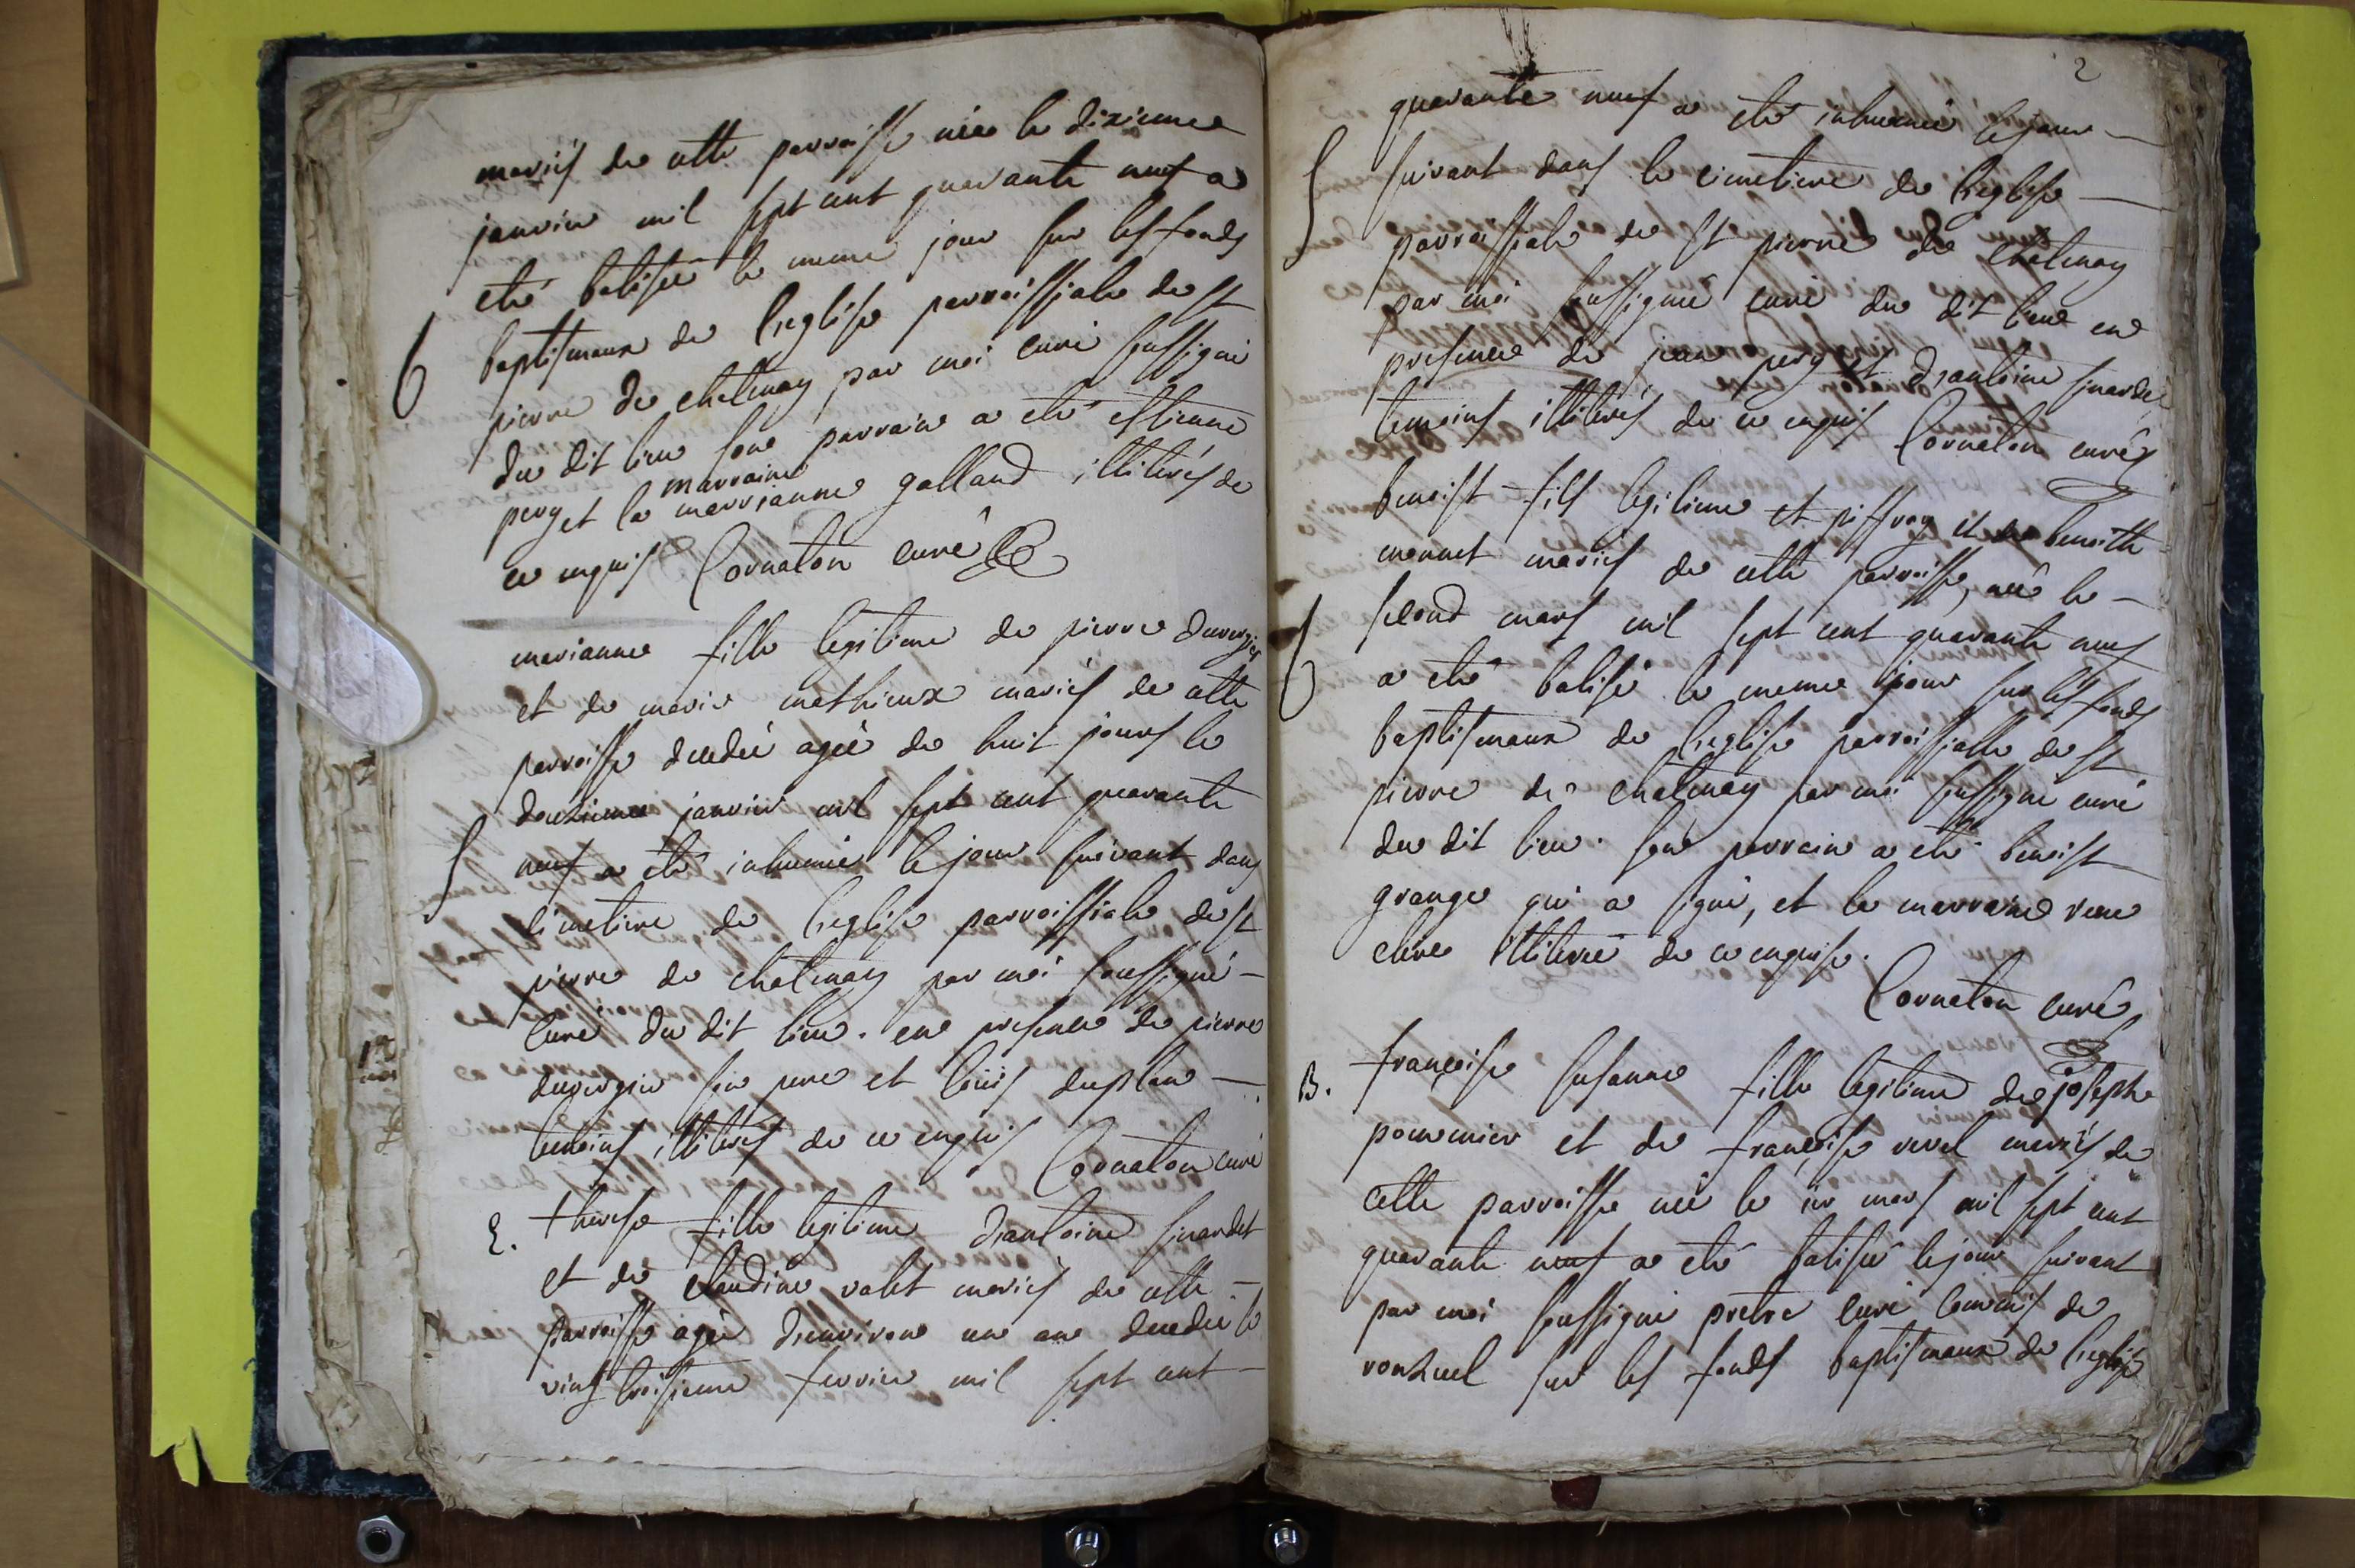 mariés de cette parroisse née le dixieme
janvier mil sept cent quarante neuf a
eté batisée le meme jour sur les fonds
B
baptismaux de l'eglise parroissiale de st
pierre de chatenay par moi curé soussigné
du dit lieu son parrain a eté estienne
marraine
pery et la marrianne galland illiterés de
ce enquis Cornaton curé
marianne fille legitime de pierre duvergier
et de marie mathieux mariés de cette
parroisse decedée agée de huit jours le
douzieme janvier mil sept cent quarante
S
neuf a eté inhumée le jour suivant dans
cimetiere de l'eglise parroissiale de st
pierre de chatenay par moi soussigné
curé du dit lieu. en presence de pierre
duvergier son pere et loüis duplan
temoins illiterés de ce enquis Cornaton curé
S. therese fille legitime d'antoine sinardet
et de claudine valet mariés de cette
parroisse agée d'environ un an decedée le
vint troisieme fevrier mil sept cent
2
quarante neuf a eté inhumée le jour
S
suivant dans le cimetiere de l'eglise
parroissiale de st pierre de chatenay
par moi soussigné curé du dit lieu en
presence de jean pery et d'antoine sinardet
temoins illiterés de ce enquis Cornaton curé
benoist fils legitime et piffray et de benoite
monnet mariés de cette parroisse, né le
B
second mars mil sept cent quarante neuf
a eté batisé le meme jour sur les fonds
baptismaux de l'eglise parroissialle de st
pierre de chatenay par moi soussigné curé
du dit lieu. son parrain a eté benoist
grange qui a signé, et la marraine
illiterée de ce enquise.
Cornaton curé
B. françoise susanne fille legitime de joseph
pommier et de françoise revel mariés de
cette parroisse née le mars mil sept cent
quarante neuf a eté batisée le jour suivant
par moi soussigné pretre curé commis de
ronzuel sur les fonds baptismaux de l'eglise